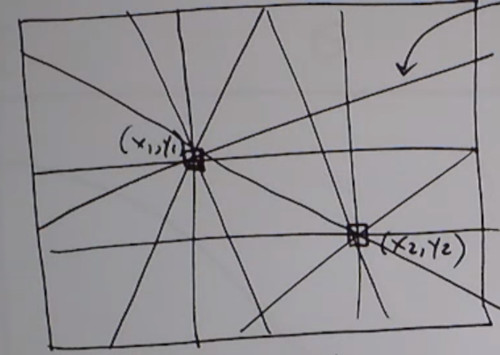 (x₁,y₁
(x₂,y₂)